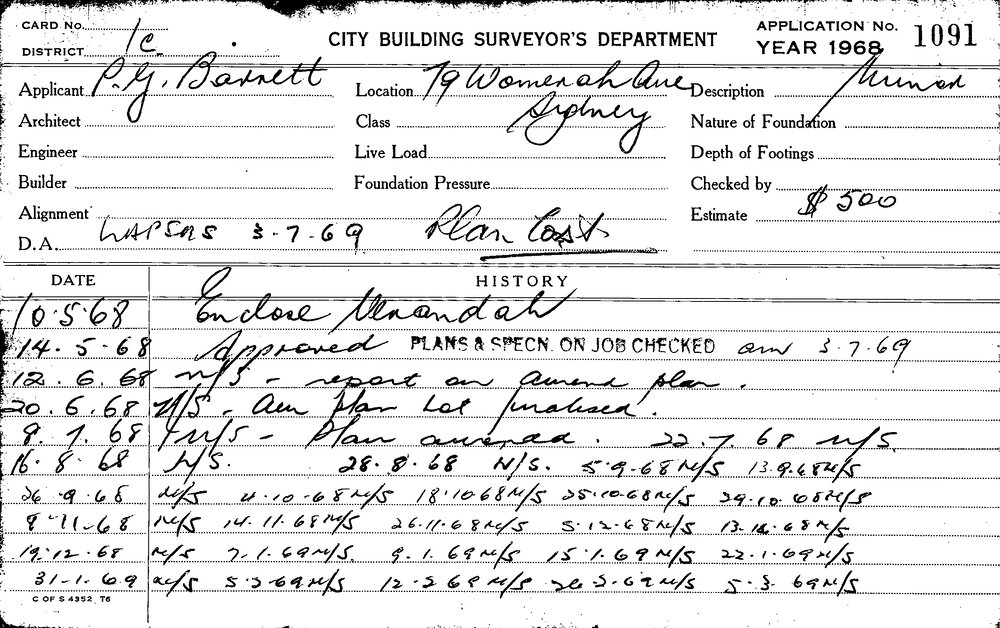 CARD No.
DISTRICT 1c
CITY BUILDING SURVEYOR'S DEPARTMENT
APPLICATION No. 1091
YEAR 1968
Applicant P. G. Barrett Location 79 Womerah Ave Description Minor
Sydney
Architect Class Nature of Foundation
Engineer Live Load Depth of Footings
Builder Foundation Pressure Checked by
Alignment Estimate $ 500
D.A. LAPSES 3-7-69 Plan Cost
DATE HISTORY
10.5.68 Enclose Verandah
14.5.68 Approved PLANS & SPECN. ON JOB CHECKED 3.7.69
12.6.68 N/S - report on amend plan.
20.6.68 N/S - Am plan not finalised.
9.7.68 N/S - Plan amended. 22.7.68 N/S
16.8.68 N/S. 28.8.68 N/S. 5.9.68 N/S 13.9.68 N/S
26.9.68 N/S 4.10.68 N/S 18.10.68 N/S 25.10.68 N/S 29.10.68 N/S
8-11-68 N/S 14.11.68 N/S 26.11.68 N/S 5.12.68 N/S 13.12.68 N/S
19.12.68 N/S 7.1.69 N/S. 9.1.69 N/S 15.1.69 N/S 22.1.69 N/S
31.1.69 N/S 5.2.69 N/S 12.2.69 N/S 26.2.69 N/S 5.3.69 N/S
C OF S 4352 T6